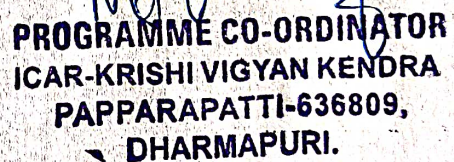 PROGRAMME CO-ORDINATOR
ICAR-KRISHI VIGYAN KENDRA
PAPPARAPATTI-636809,
DHARMAPURI.